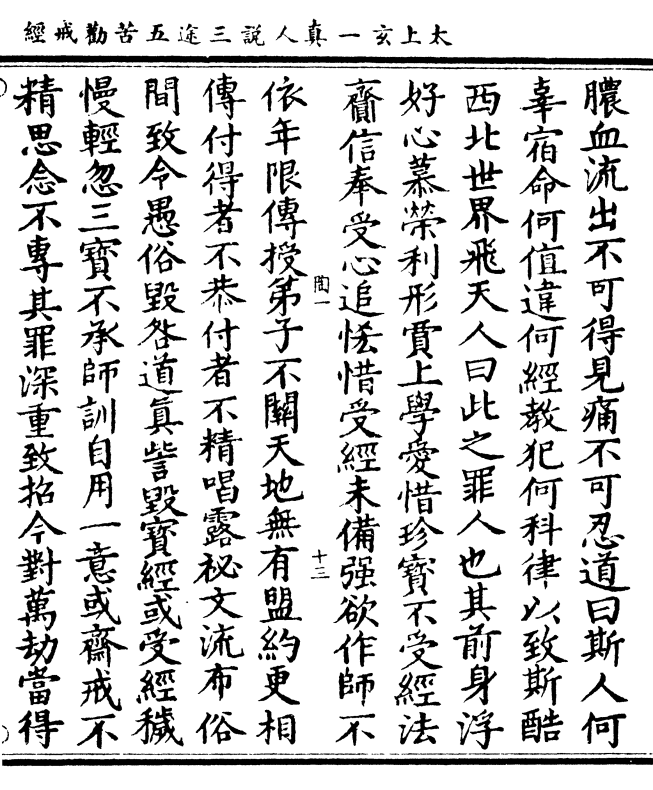 太上玄一真人説三途五苦勸戒經
膿血流出不可得見痛不可忍道曰斯人何
辜宿命何值違何經教犯何科律以致斯酷
西北世界飛天人曰此之罪人也其前身浮
好心慕榮利形賈上學愛惜珍寳不受經法
齎信奉受心追恡惜受經未備强欲作師不
閨一
十三
依年限傳授第子不關天地無有盟約更相
傳付得者不恭付者不精唱露祕文流布俗
間致令愚俗毀咎道真訾毀寳經或受經穢
慢輕忽三寳不承師訓自用一意或齋戒不
精思念不專其罪深重致招今對萬劫當得